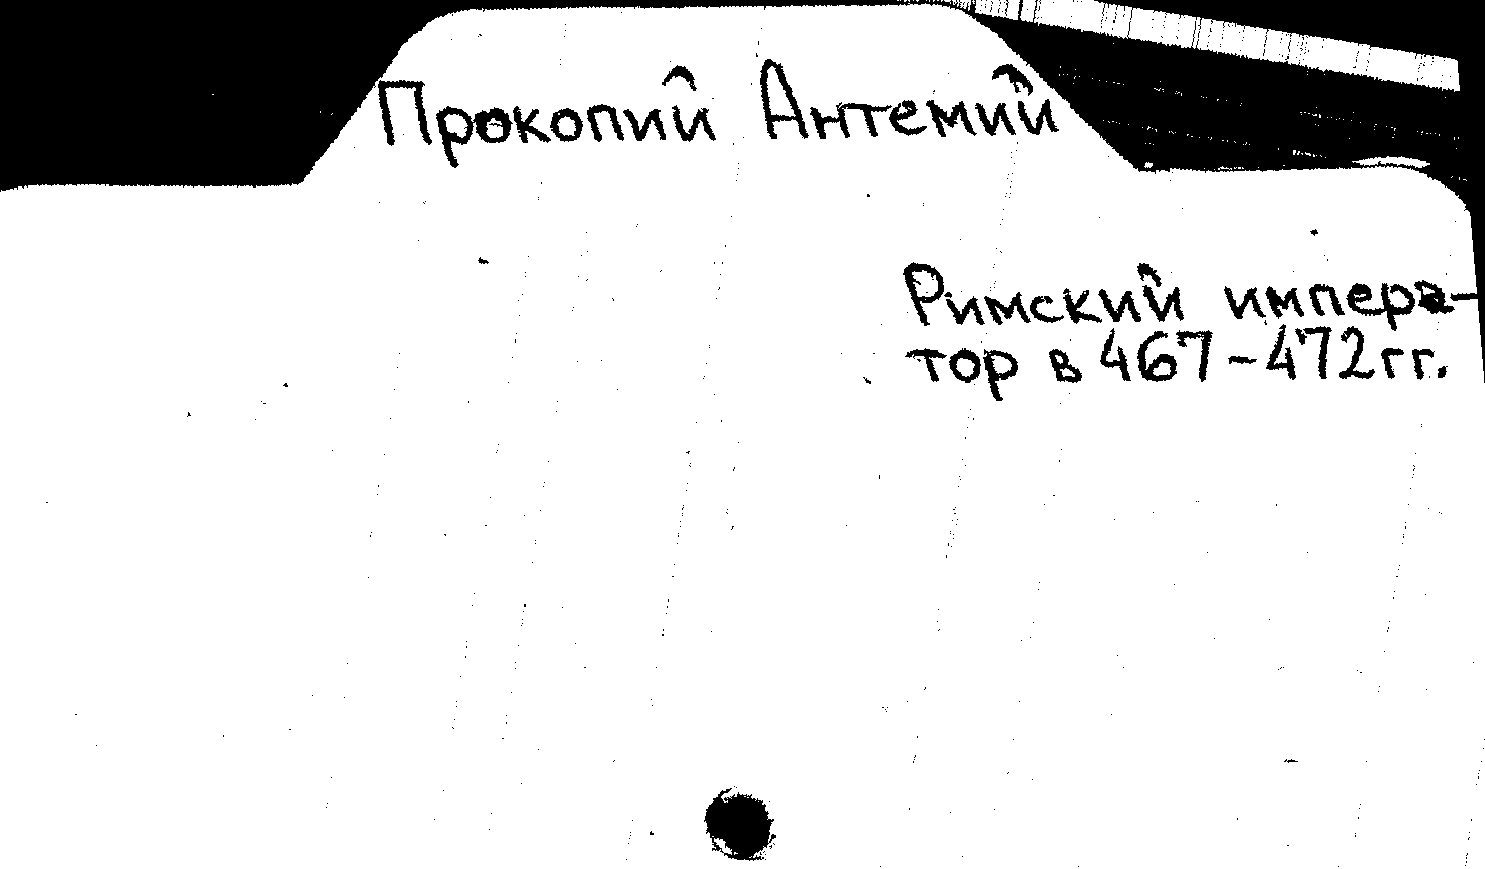 Прокопий Антемий
Римский импера-
тор в 467-472гг.